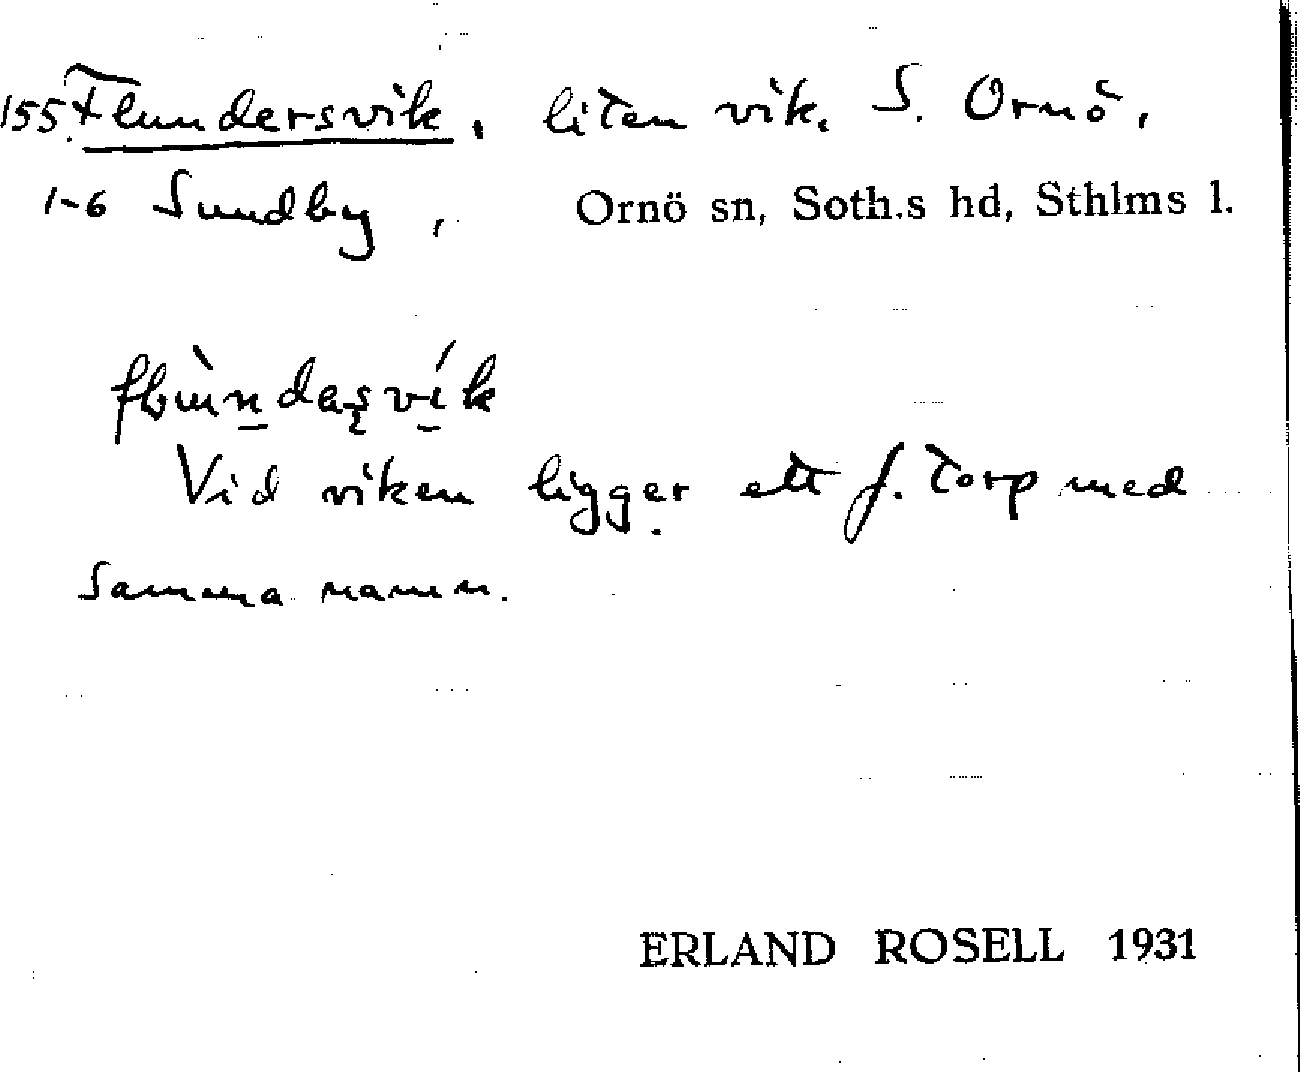 155. Flundersvik, liten vik, S. Ornö,
1-6 Sundby, Ornö sn, Soth.s hd, Sthlms l.
Vid viken ligger ett f. torp med
samma namn.
ERLAND ROSELL 1931